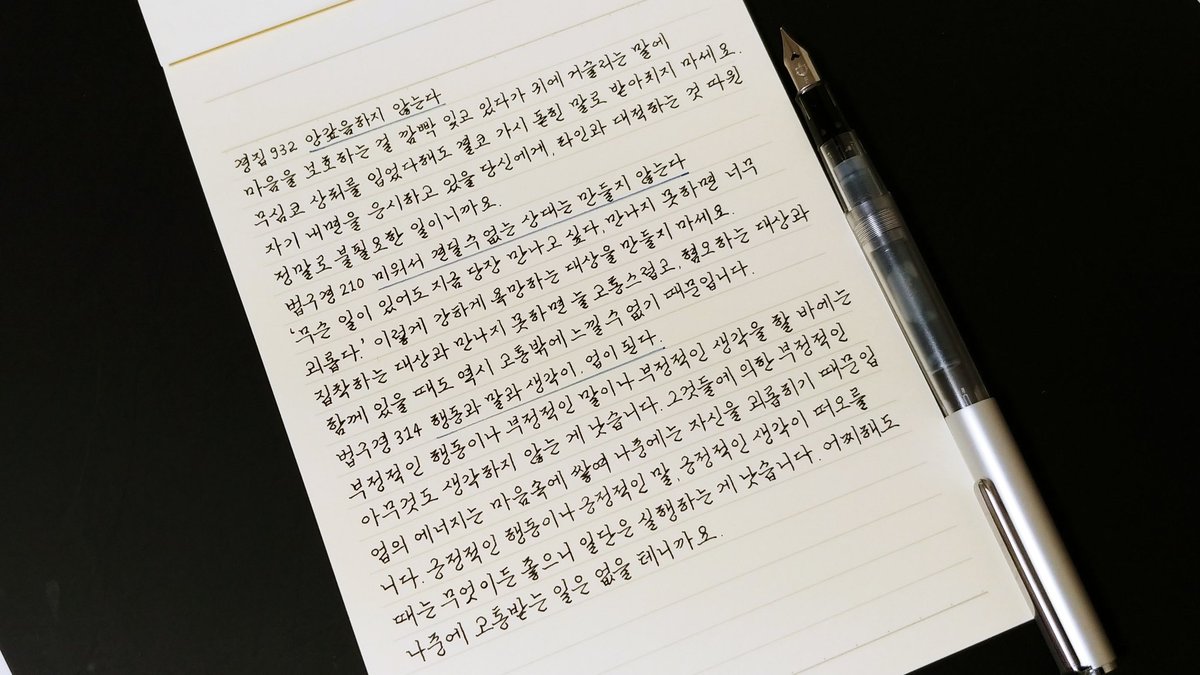 경집932 앙갚음하지 않는다
마음을 보호하는 걸 깜빡 잊고 있다가 귀에 거슬리는 말에
무심코 상처를 입었다해도 결코 가시 돋힌 말로 받아치지 마세요.
자기 내면을 응시하고 있을 당신에게, 타인과 대적하는 것 따윈
정말로 불필요한 일이니까요.
법구경210 미워서 견딜수없는 상대는 만들지 않는다
‘무슨 일이 있어도 지금 당장 만나고 싶다. 만나지 못하면 너무
괴롭다.’ 이렇게 강하게 욕망하는 대상을 만들지 마세요.
집착하는 대상과 만나지 못하면 늘 고통스럽고, 혐오하는 대상과
함께 있을 때도 역시 고통밖에 느낄수 없기 때문입니다.
법구경314 행동과 말과 생각이. 업이 된다.
부정적인 행동이나 부정적인 말이나 부정적인 생각을 할 바에는
아무것도 생각하지 않는 게 낫습니다. 그것들에 의한 부정적인
업의 에너지는 마음속에 쌓여 나중에는 자신을 괴롭히기 때문입
니다. 긍정적인 행동이나 긍정적인 말, 긍정적인 생각이 떠오를
때는 무엇이든 좋으니 일단은 실행하는 게 낫습니다. 어찌해도
나중에 고통받는 일은 없을 테니까요.